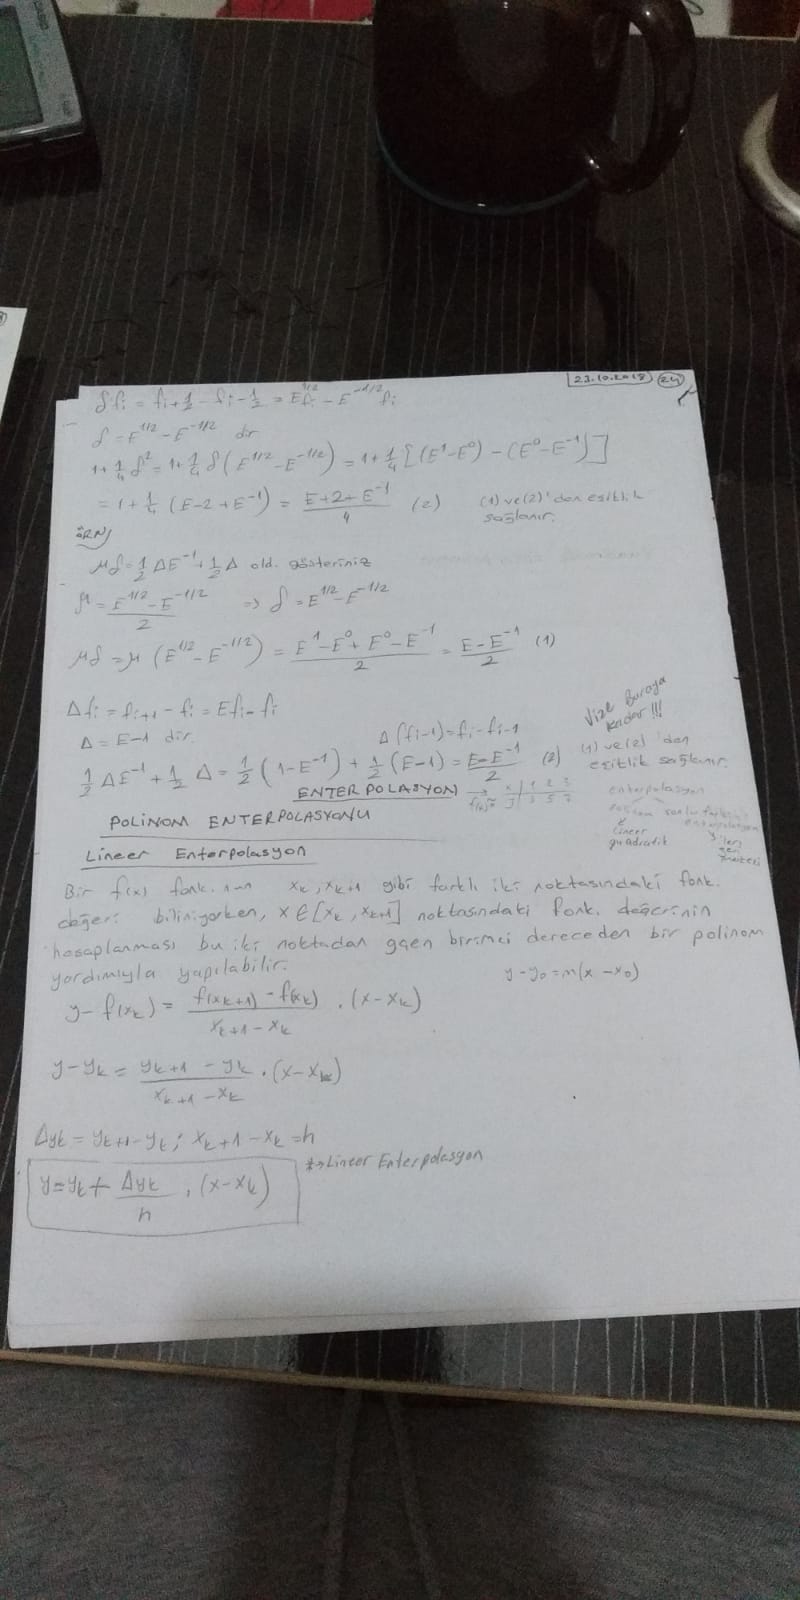 23.10.2018 24
δfi = fi+1/2 - fi-1/2 = E^1/2 fi - E^-1/2 fi
δ = E^1/2 - E^-1/2 dir
1+1/4 δ^2 = 1+1/4 δ(E^1/2 - E^-1/2) = 1+1/4 [(E^1-E^0) - (E^0-E^-1)]
= 1+1/4 (E-2+E^-1) = (E+2+E^-1)/4 (2) (1) ve (2)'den eşitlik
sağlanır.
ÖRN)
μδ = 1/2 ΔE^-1 + 1/2 Δ old. gösteriniz
μ = (E^1/2 - E^-1/2)/2 => δ = E^1/2 - E^-1/2
μδ = μ (E^1/2 - E^-1/2) = (E^1 - E^0 + E^0 - E^-1)/2 = (E - E^-1)/2 (1)
Vize Buraya
Kadar!!!
Δfi = fi+1 - fi = Efi - fi
Δ = E-1 dir. Δ(fi-1) = fi - fi-1
1/2 ΔE^-1 + 1/2 Δ = 1/2 (1-E^-1) + 1/2 (E-1) = (E-E^-1)/2 (2) (1) ve (2)'den
eşitlik sağlanır.
ENTERPOLASYON → x 1 2 3
f(x)= y 3 5 7
enterpolasyon
polinom
enterpolasyon
lineer
quadratik
POLİNOM ENTERPOLASYONU
Lineer Enterpolasyon
Bir f(x) fonk.nun xk, xk+1 gibi farklı iki noktasındaki fonk.
değeri biliniyorken, x∈[xk, xk+1] noktasındaki fonk. değerinin
hesaplanması bu iki noktadan gçen birinci dereceden bir polinom
yardımıyla yapılabilir. y-y0 = m(x-x0)
y - f(xk) = (f(xk+1) - f(xk))/(xk+1 - xk) . (x-xk)
y - yk = (yk+1 - yk)/(xk+1 - xk) . (x-xk)
Δyk = yk+1 - yk ; xk+1 - xk = h
y = yk + Δyk/h . (x-xk) *→ Lineer Enterpolasyon